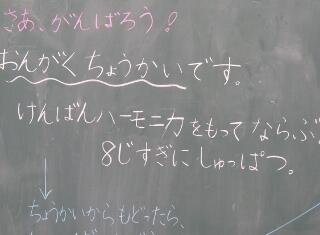 さあ、がんばろう!
おんがくちょうかいです。
けんばんハーモニカをもってならぶ
8じすぎにしゅっぱつ。
ちょうかいからもどったら、